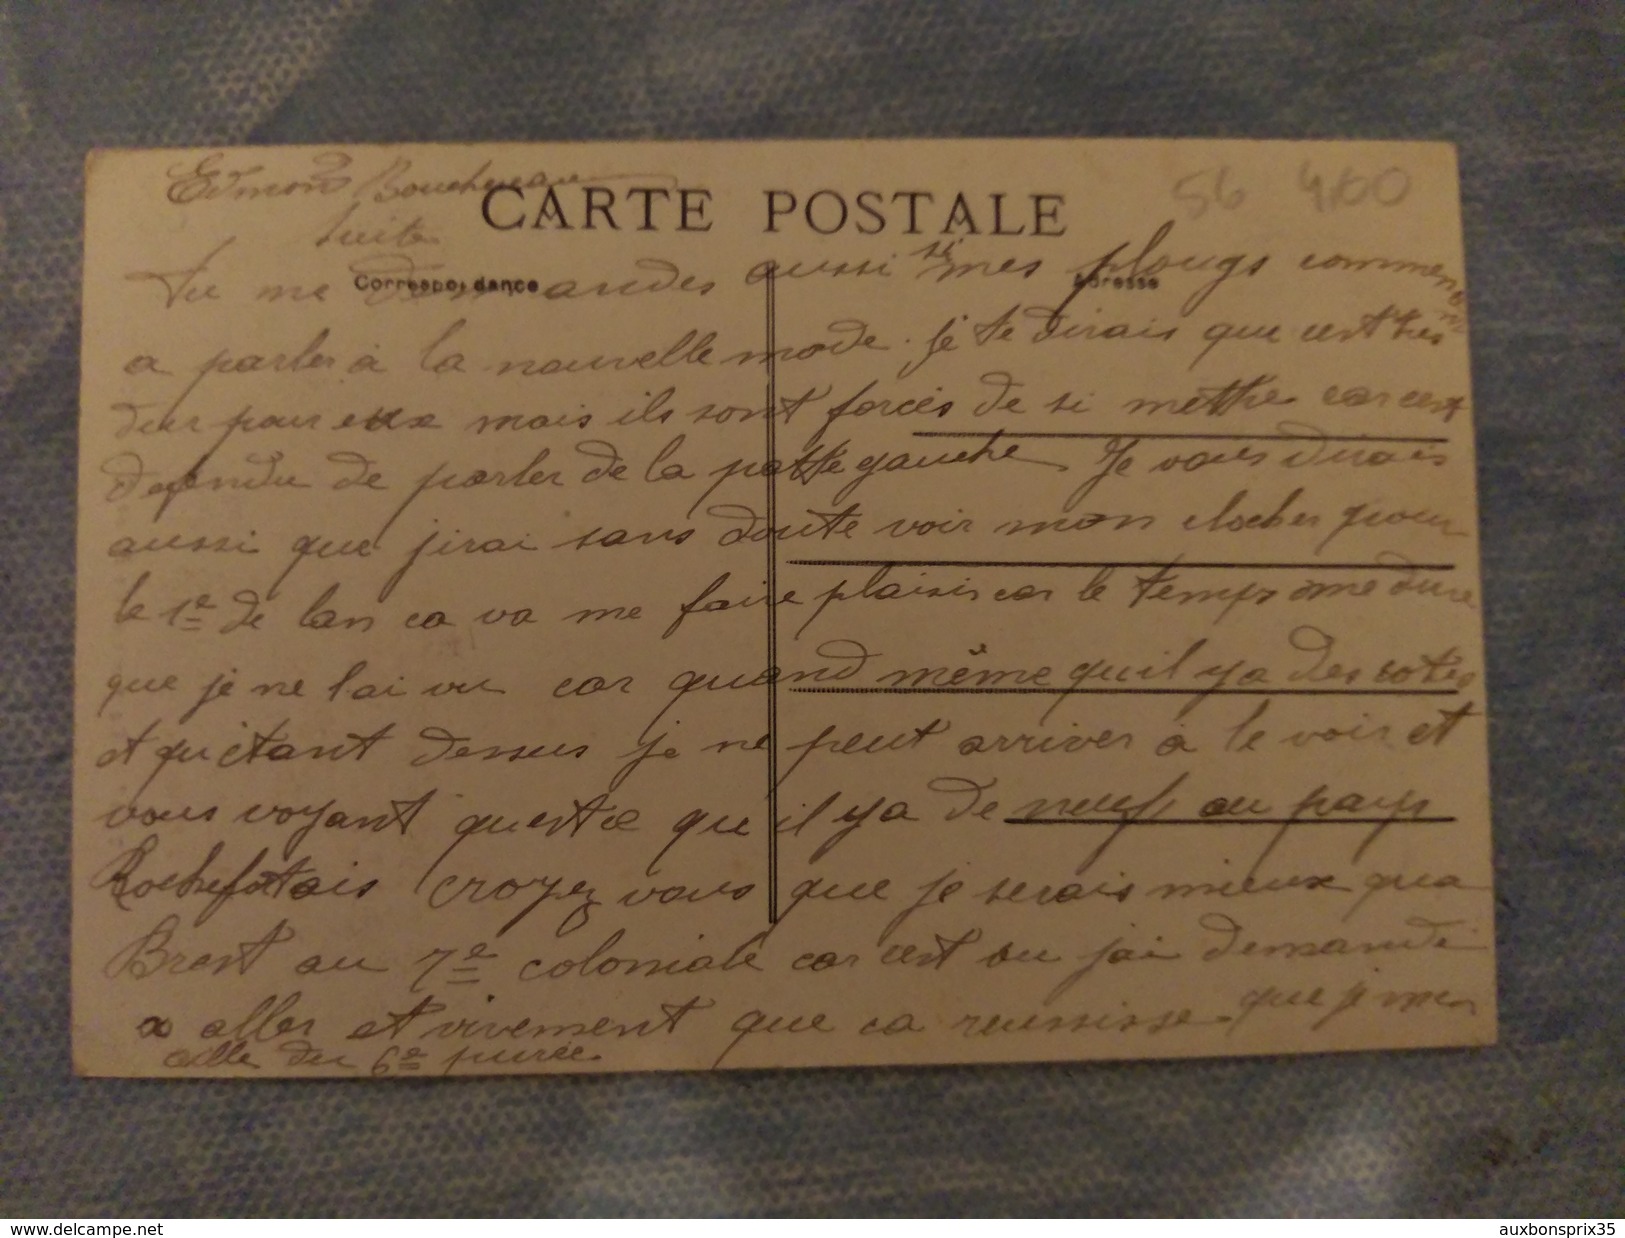 Edmond Boucheneau
CARTE POSTALE
56 4,00
suite
Correspondance
Adresse
Tu me demandes aussi si mes plougs commencent
a parler à la nouvelle mode. Je te dirais que cest très
dur pour eux mais ils sont forcés de si mettre car cest
defendu de parler de la patte gauche. Je vous dirais
aussi que jirai sans doute voir mon clocher pour
le 1e de lan ca va me faire plaisir car le temps me dure
que je ne lai vu car quand même quil ya des cotes
et qu'étant dessus je ne peut arriver à le voir et
vous voyant quest ce que il ya de neuf au pays
Rochefortais croyez vous que je serais mieux qua
Brest au 7e coloniale car cest ou jai demandé
a aller et vivement que ca reussisse que je men
aille du 6e purée.
www.delcampe.net
auxbonsprix35